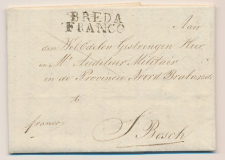 BREDA
FRANCO
Aan
den Wel Edelen Gestrengen Heer
en Mr Auditeur Militair
in de Provincie Noord Braband
te
franco
S Bosch